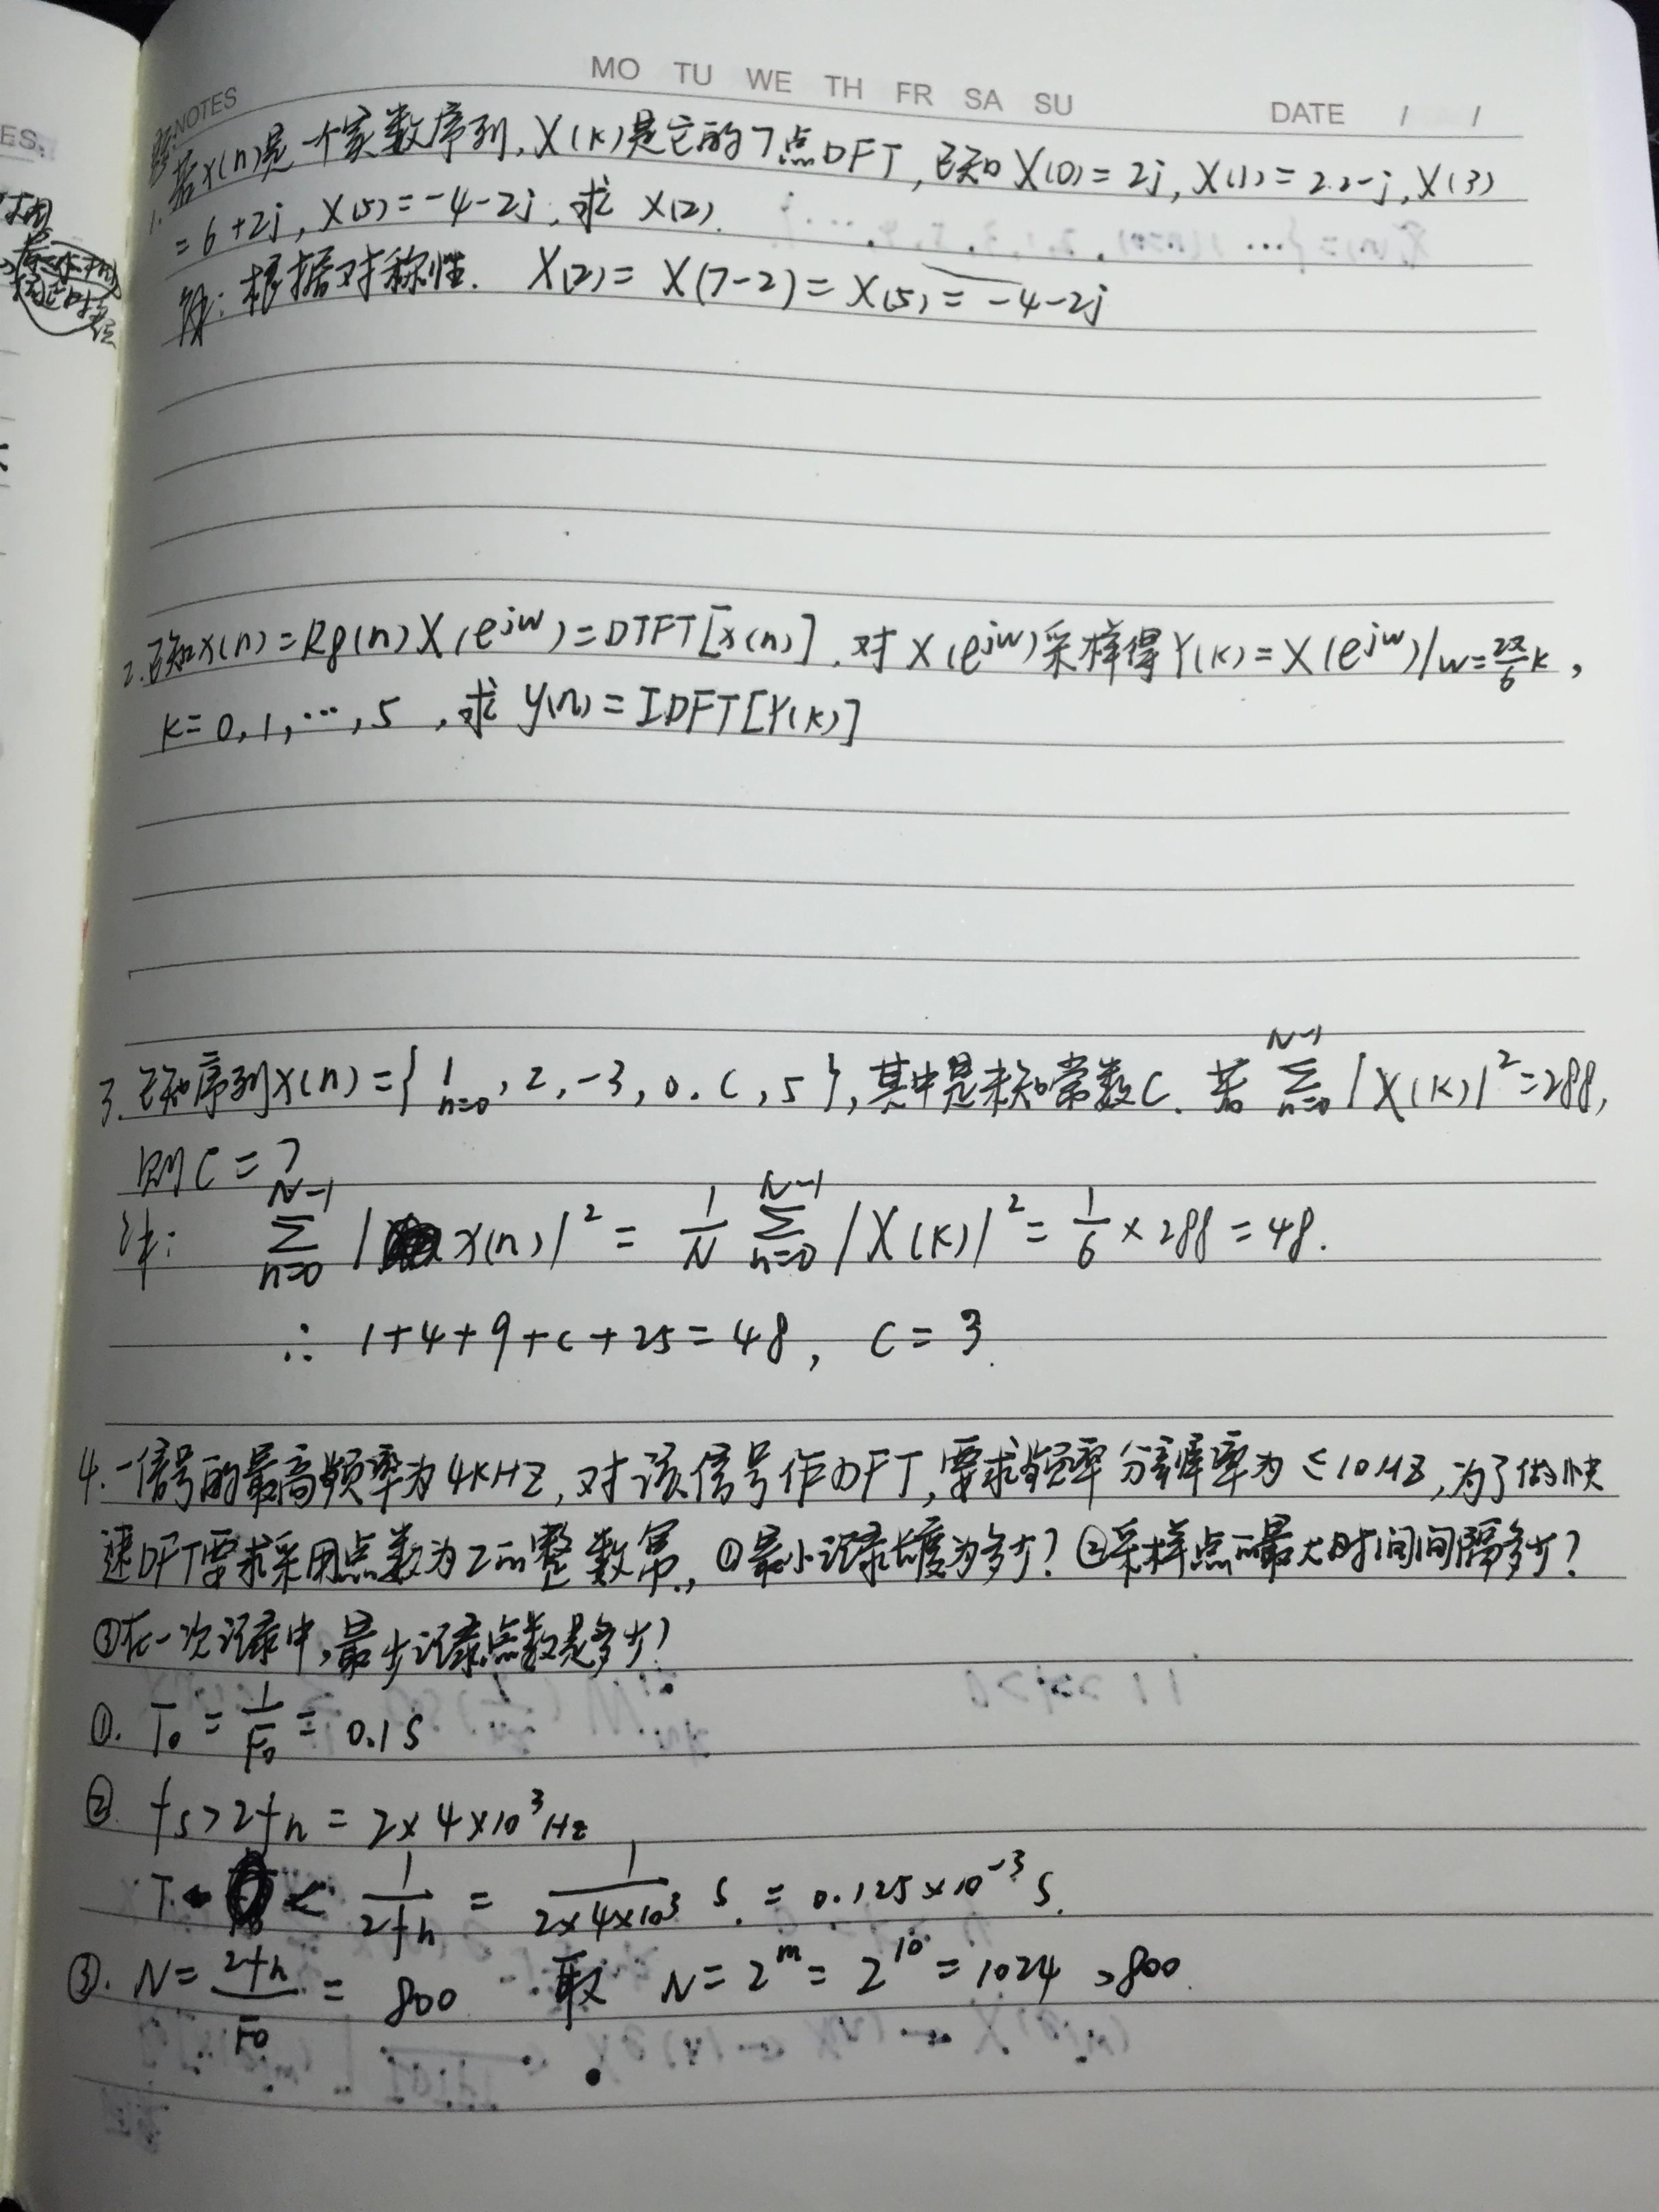 NOTES
MO TU WE TH FR SA SU
DATE / /
ES.
1. 若x(n)是一个实数序列,X(k)是它的7点DFT,已知X(0)=2j,X(1)=2.2-j,X(3)
=6+2j,X(5)=-4-2j,求X(2).
解:根据对称性. X(2)=X(7-2)=X(5)=-4-2j
2.已知x(n)=R8(n)X(e^jw)=DTFT[x(n)].对X(e^jw)采样得Y(k)=X(e^jw)/w=2π/6 k,
k=0,1,…,5,求y(n)=IDFT[Y(k)]
3.已知序列x(n)={1 n=0,2,-3,0.C,5},其中是未知常数C.若 N-1 Σ n=0 |X(k)|²=288,
则C=?
N-1 Σ n=0 |x(n)|²=1/N N-1 Σ n=0 |X(k)|²=1/6×288=48.
∴ 1+4+9+c+25=48, C=3.
4.一信号的最高频率为4KHZ,对该信号作DFT,要求频率分辨率为≤10HZ,为了做快
速DFT要求采用点数为2的整数幂,①最小记录长度为多少?②采样点的最大时间间隔多少?
③在一次记录中,最少记录点数是多少?
①. T0=1/F0=0.1s
② fs>2fh=2×4×10³Hz
T < 1/2fh = 1/2×4×10³ s.=0.125×10⁻³s.
③. N=2fh/F0=800 取 N=2^m=2^10=1024 >800.